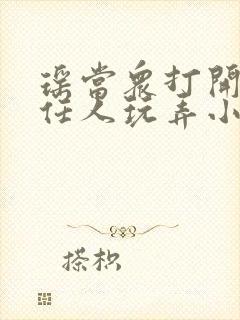 瑶當眾打開
任人玩弄小
搽枳